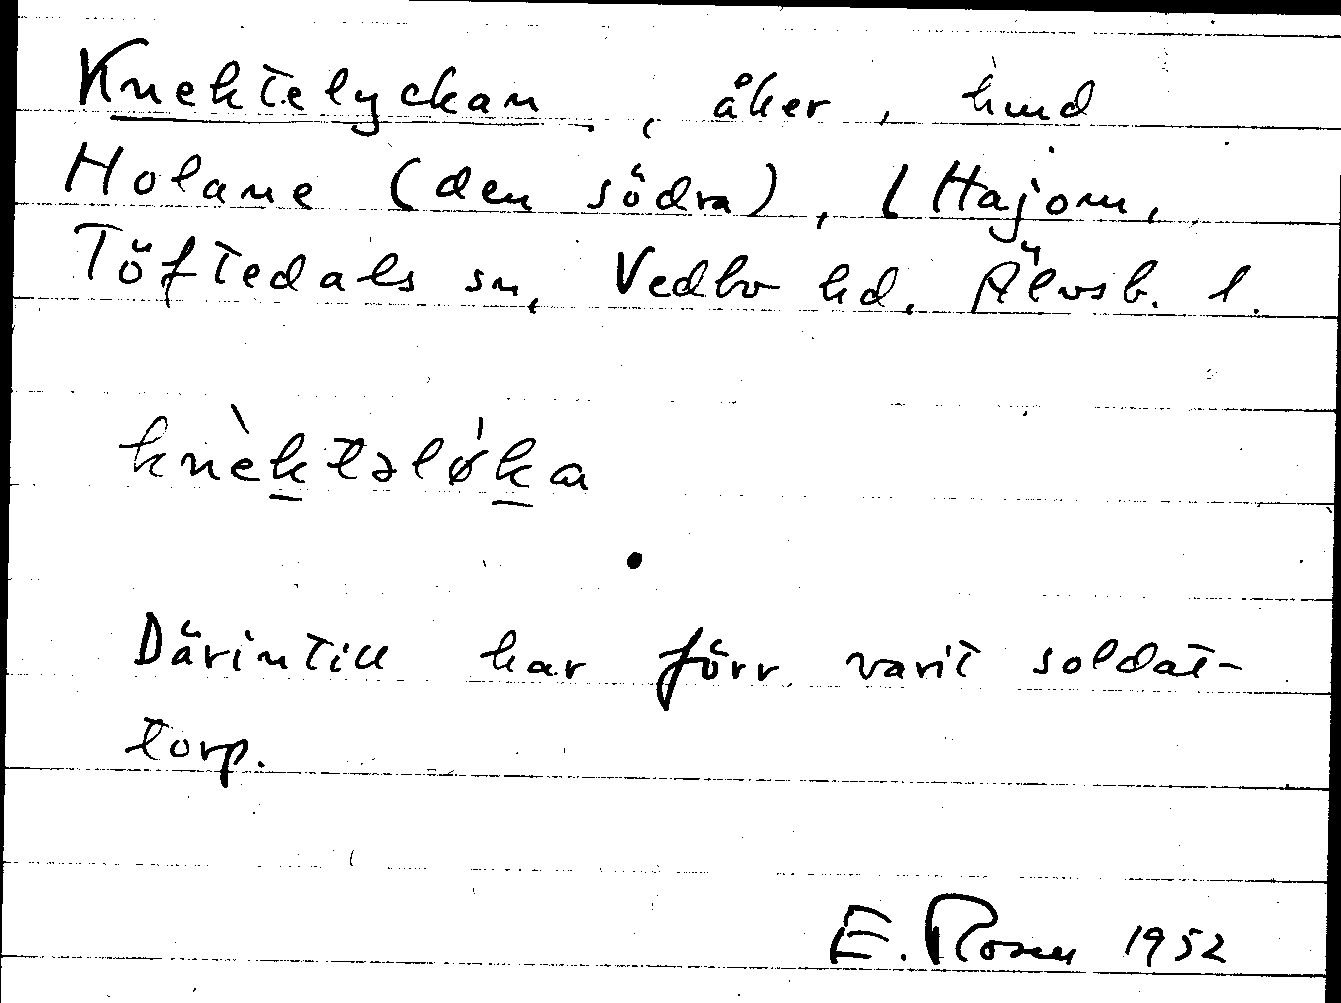 Knektelyckan, åker, hmd
Holane (den södra), (Hajom,
Töftedals sn, Vedbo hd. Älvsb. l.
knèktəlø̍ka
Därintill har förr varit soldat-
torp.
E. Rosen 1952